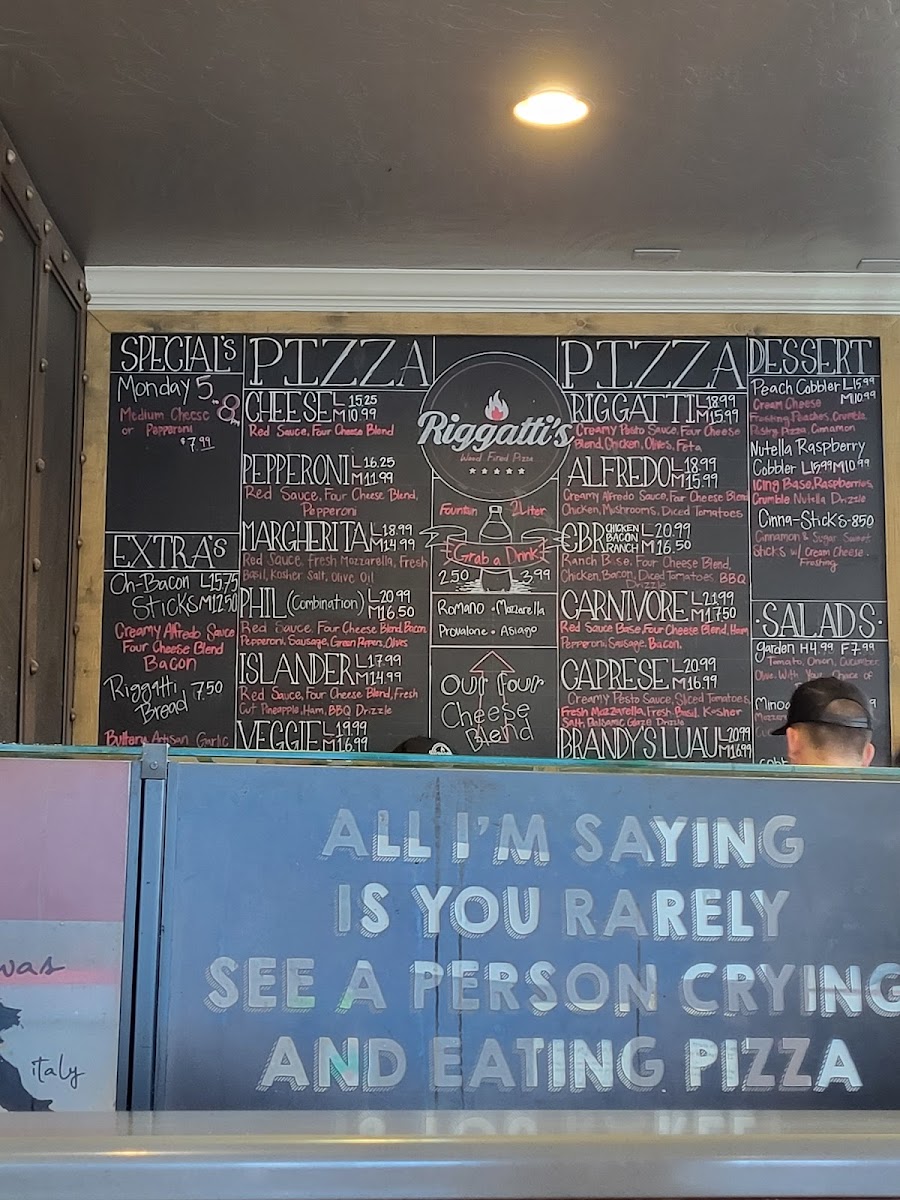 SPECIAL'S
Monday 5
Medium Cheese
or Pepperoni
$7.99
EXTRA'S
Oh-Bacon L 15.75
Sticks M 12.50
Creamy Alfredo Sauce
Four Cheese Blend
Bacon
Riggatti 7.50
Bread
Buttery Artisan Garlic
PIZZA
CHEESE L 15.25
M 10.99
Red Sauce, Four Cheese Blend
PEPPERONI L 16.25
M 11.99
Red Sauce, Four Cheese Blend,
Pepperoni
MARGHERITA L 18.99
M 14.99
Red Sauce, Fresh Mozzarella, Fresh
Basil, Kosher Salt, Olive Oil
PHIL (Combination) L 20.99
M 16.50
Red Sauce, Four Cheese Blend, Bacon
Pepperoni, Sausage, Green Peppers, Olives
ISLANDER L 17.99
M 14.99
Red Sauce, Four Cheese Blend, Fresh
Cut Pineapple, Ham, BBQ Drizzle
VEGGIE L 19.99
M 16.99
Riggatti's
Wood Fired Pizza
Fountain 2Liter
Grab a Drink
2.50 3.99
Romano • Mozzarella
Provalone • Asiago
Our four
Cheese
Blend
PIZZA
RIGGATTI L 18.99
M 15.99
Creamy Pesto Sauce, Four Cheese
Blend, Chicken, Olives, Feta
ALFREDO L 18.99
M 15.99
Creamy Alfredo Sauce, Four Cheese Blend
Chicken, Mushrooms, Diced Tomatoes
CBR CHICKEN BACON RANCH L 20.99
M 16.50
Ranch Base, Four Cheese Blend,
Chicken, Bacon, Diced Tomatoes, BBQ
Drizzle
CARNIVORE L 21.99
M 17.50
Red Sauce Base, Four Cheese Blend, Ham
Pepperoni, Sausage, Bacon.
CAPRESE L 20.99
M 16.99
Creamy Pesto Sauce, Sliced Tomatoes
Fresh Mozzarella, Fresh Basil, Kosher
Salt, Balsamic Glaze Drizzle
BRANDY'S LUAU L 20.99
M 16.99
DESSERT
Peach Cobbler L 15.99
M 10.99
Cream Cheese
Frosting, Peaches, Crumble
Pastry Pizza, Cinnamon
Nutella Raspberry
Cobbler L 15.99 M 10.99
Icing Base, Raspberries,
Crumble Nutella Drizzle
Cinna-Sticks-850
Cinnamon & Sugar Sweet
Sticks w/ Cream Cheese
Frosting
•SALADS•
Garden H 4.99 F 7.99
Tomato, Onion, Cucumber
Olive, With Your Choice of
ALL I'M SAYING
IS YOU RARELY
SEE A PERSON CRYING
AND EATING PIZZA
was
italy